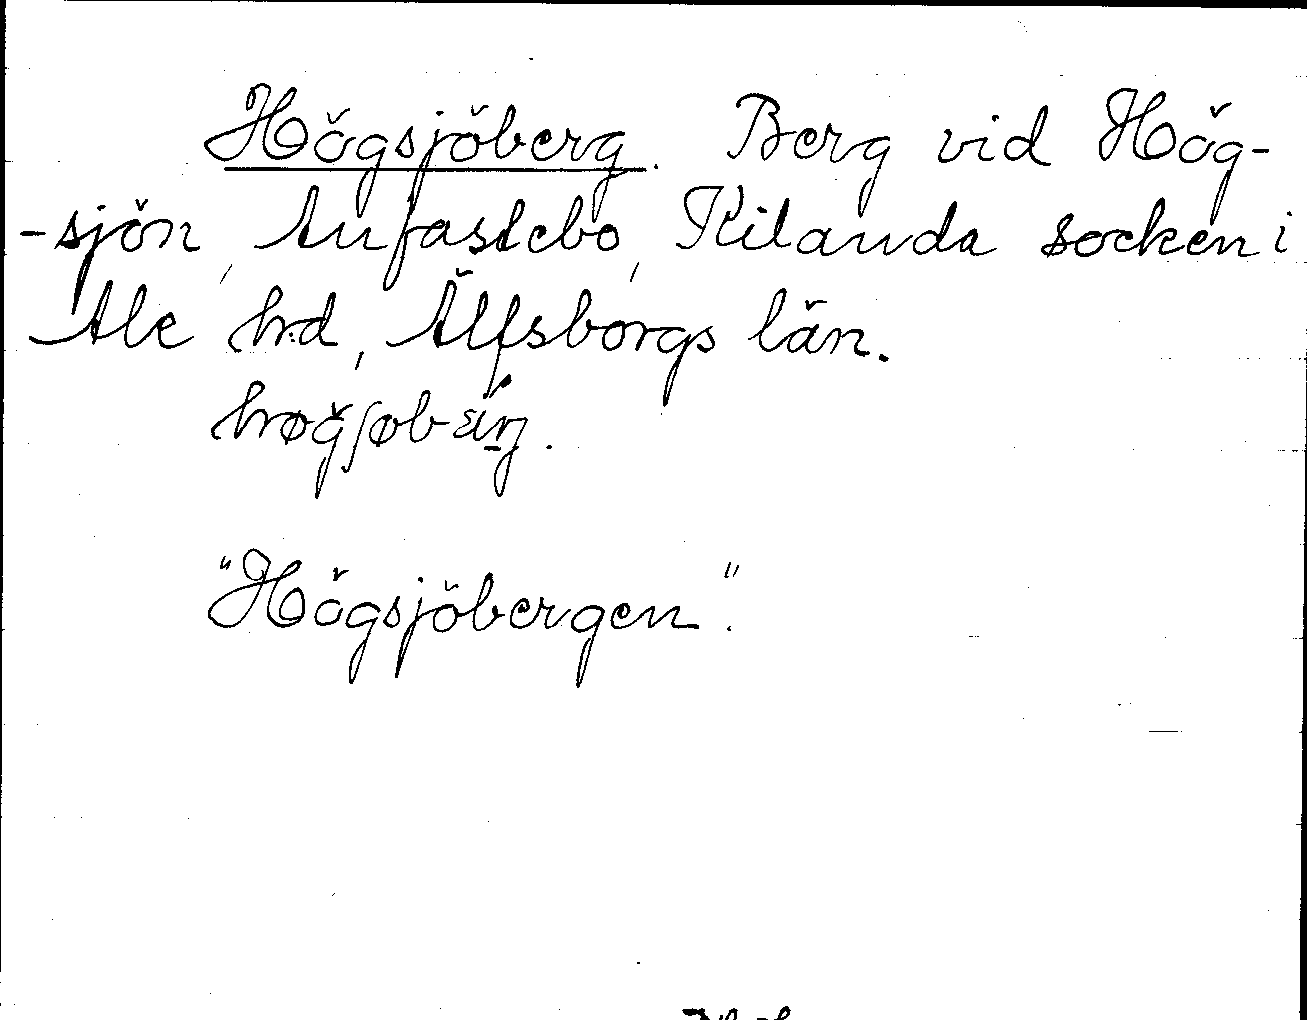 Högsjöberg. Berg vid Hög-
-sjön, Anfastebo, Kilanda socken i
Ale hd, Älfsborgs län.
"Högsjöbergen".